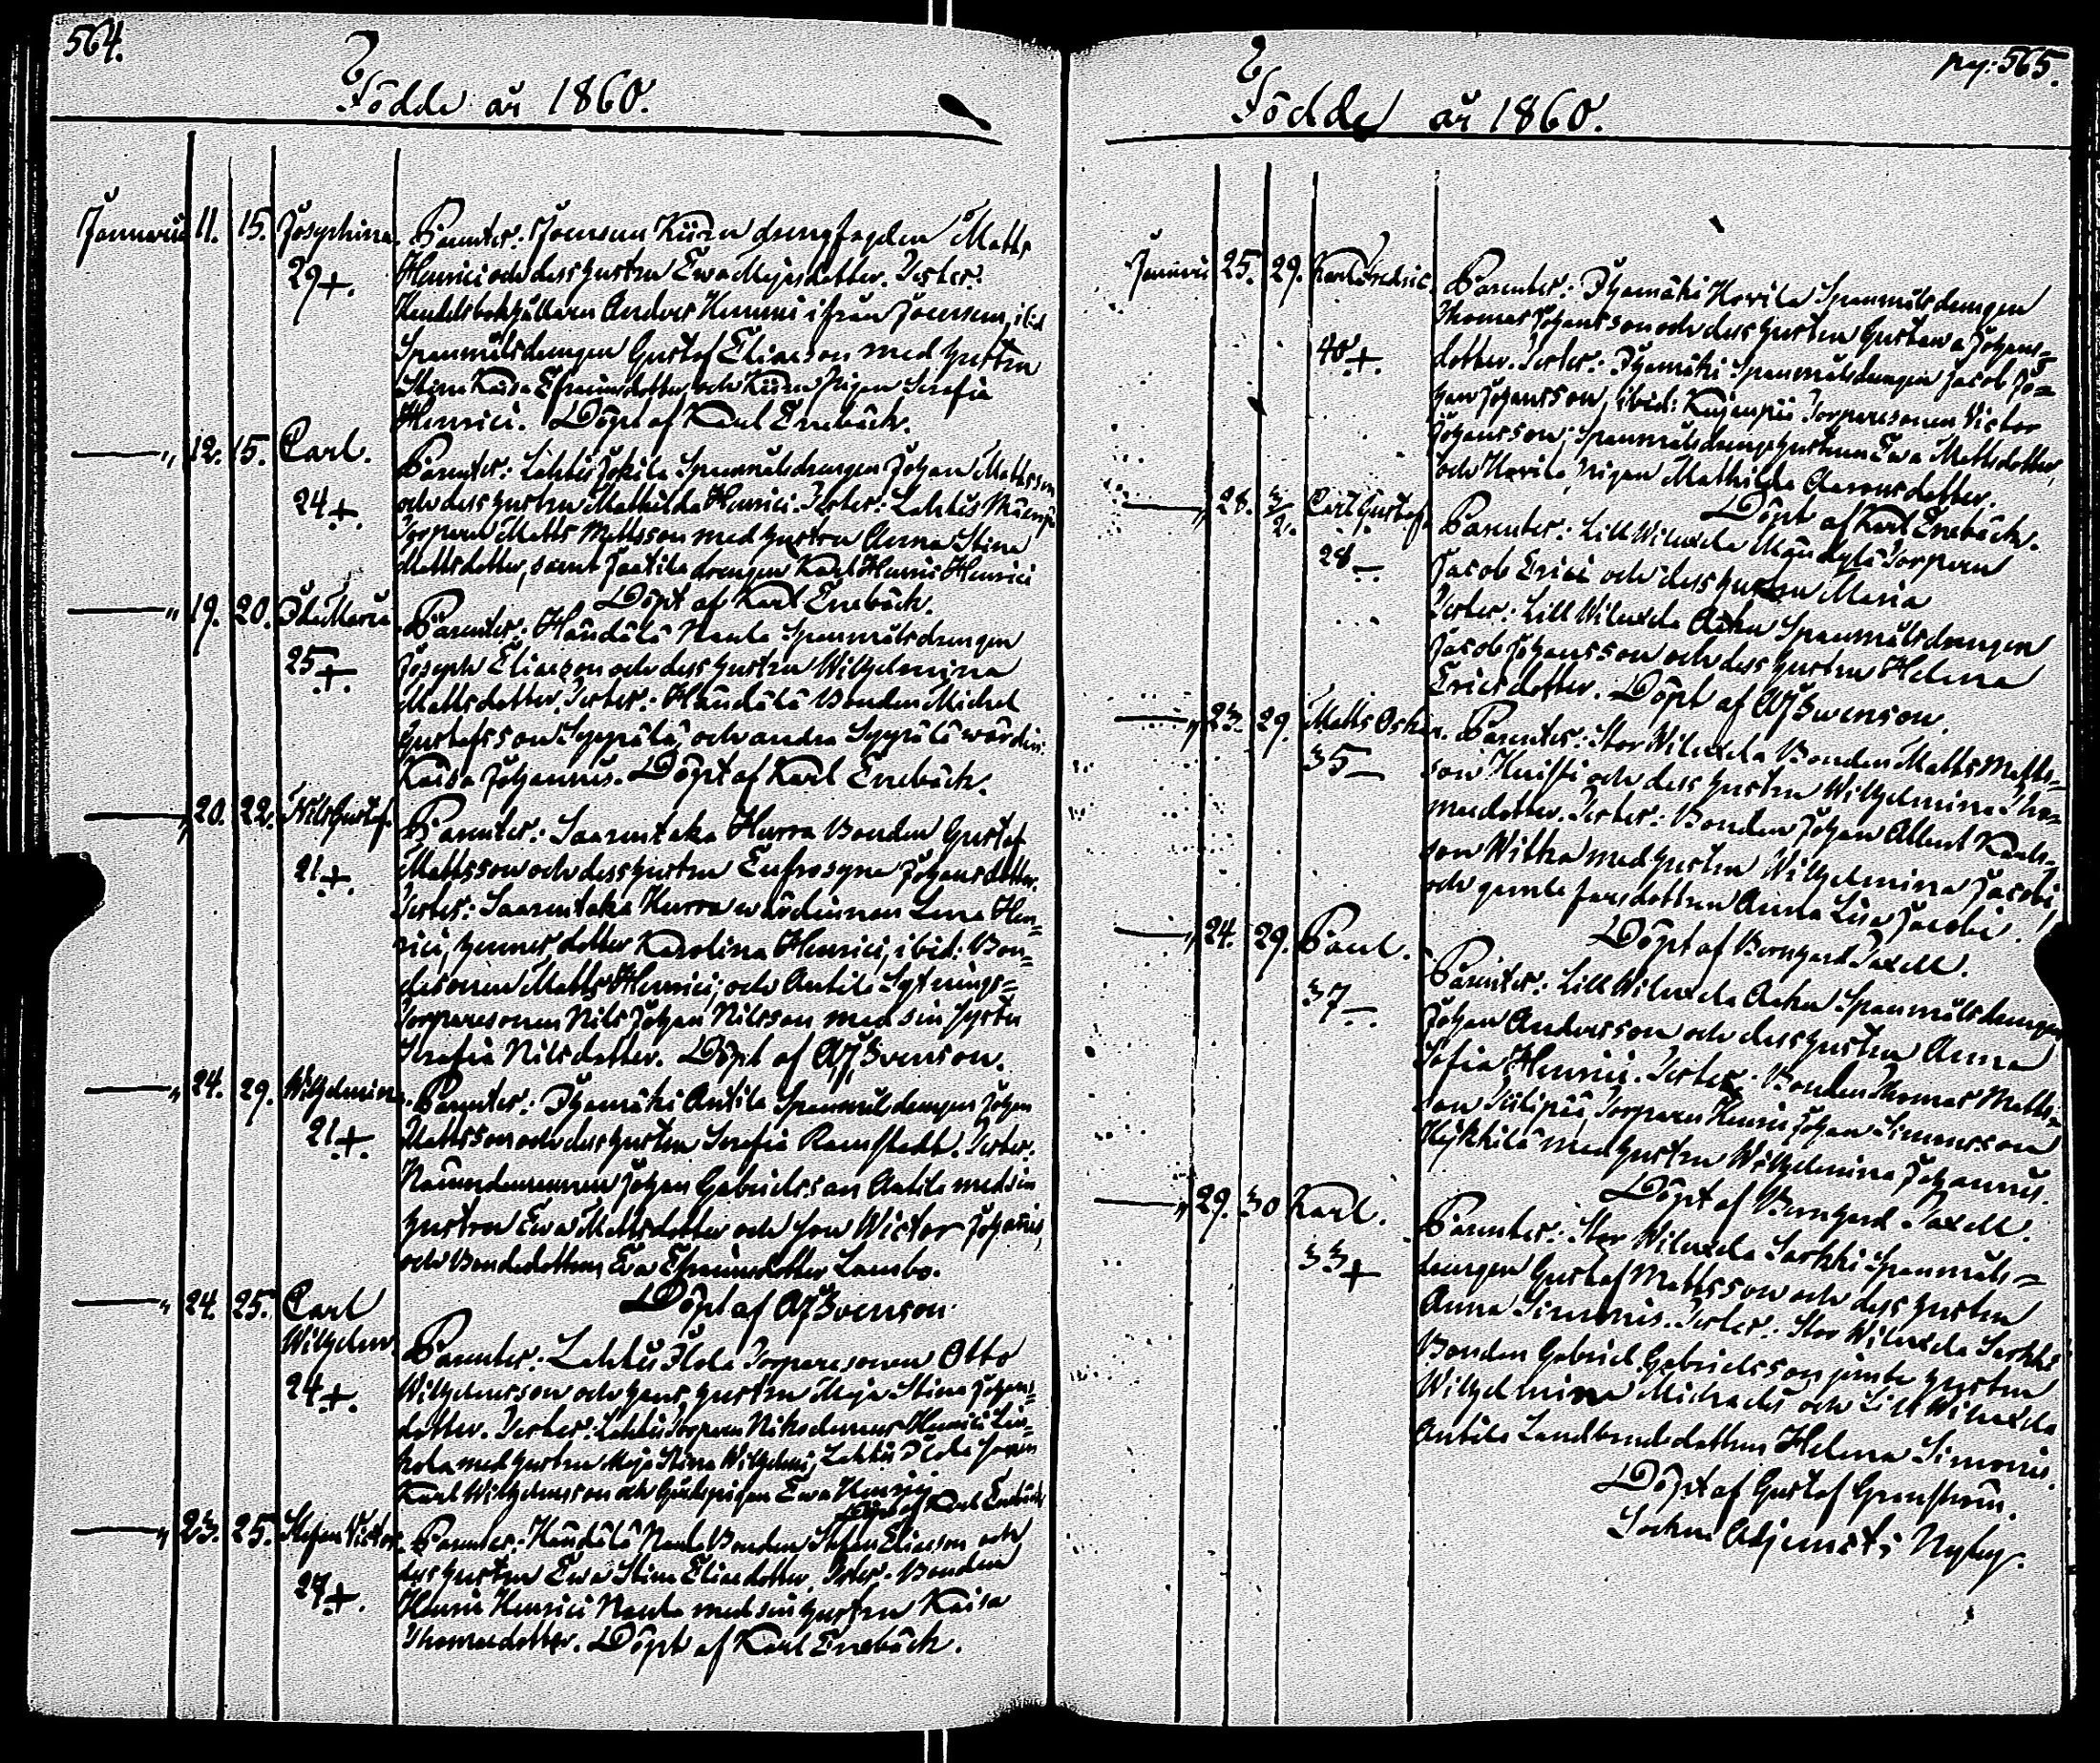 564.
Födde år 1860.
Januarii 11. 15. Josephina. Parenter: Joensuu Kiirn drengfogden Matts
29+. Henrici och dess hustru Ewa Majasdotter. Tester:
Handelsbokhållaren Anders Henrici ifrån Joensuu, ibid
Spanmålsdrengen Gustaf Eliasson med hustru
Stina Kaisa Efraimsdotter och Pigan Serafia
Henrici. Döpt af Karl Enebäck.
—„ 12. 15. Carl. Parenter: Lahtis Jokila Spanmålsdrengen Johan Mattsson
24+. och dess hustru Mathilda Henrici. Tester: Lahtis
Torparen Matts Mattsson med hustru Anna Stina
Mattsdotter, samt drengen Karl Henric Henrici
Döpt af Karl Enebäck.
—„ 19. 20. Ida Maria. Parenter: Händälä Naula Spanmålsdrengen
25+. Joseph Eliasson och dess hustru Wilhelmina
Mattsdotter. Tester: Händälä Bonden Michel
Gustafsson Seppälä, och andra Seppälä wärdin:
Kaisa Johannis. Döpt af Karl Enebäck.
—„ 20. 22. Nils Gustaf. Parenter: Saarentaka Hurra Bonden Gustaf
21+. Mattsson och dess hustru Eufrosyne Johansdotter.
Tester: Saarentaka Hurra wärdinnan Lena Hen-
rici, hennes dotter Karolina Henrici, ibid: Bon-
desonen Matts Henrici, och Antila Sytnings-
Torparesonen Nils Johan Nilsson med sin syster
Serafia Nilsdotter. Döpt af AJ Svenson.
—„ 24. 29. Wilhelmina. Parenter: Ihamäki Antila Spanmålsdrengen Johan
21+. Mattsson och dess hustru Serafia Ramstedt. Tester:
Nämndemannen Johan Gabrielsson Antila med sin
hustru Ewa Mattsdotter och son Wictor Johannis,
och Bondedottren Eva Efraimsdotter Lambo.
Döpt af AJ Svenson.
—„ 24. 25. Carl
Wilhelm. Parenter: Lahtis Ilola Torparesonen Otto
24+. Wilhelmsson och hans hustru Maja Stina Johans-
dotter. Tester: Lahtis Torparen Nikodemus Henrici
med hustru Maja Stina Wilhelmi, Lahtis Ilola sonen
Karl Wilhelmsson och pigan Ewa Henrici
Döpt af Karl Enebäck
—„ 23. 25. Stefan Victor. Parenter: Händälä Naula Bonden Stefan Eliasson och
27+. dess hustru Ewa Stina Eliasdotter. Tester: Bonden
Henric Henrici Naula med sin hustru Kaisa
Thomasdotter. Döpt af Karl Enebäck.
pag: 565.
Födde år 1860.
Januarii 25. 29. Karl Fredric. Parenter: Ihamäki Horila Spanmålsdrengen
Thomas Johansson och dess hustru Gustawa Johans-
40+. dotter. Tester: Ihamäki Spanmålsdrengen Jacob Jo-
han Johansson, ibid: Torparesonen Victor
Johansson, Spanmålsdrengshustrun Ewa Mattsdotter,
och Horila Pigan Mathilda Aaronsdotter.
Döpt af Karl Enebäck.
—„ 28. 3/2. Carl Gustaf. Parenter: Lill Wiluxela Mändylä Torparen
28— Jacob Erici och dess hustru Maria
Tester: Lill Wiluxela Ashu Spanmålsdrengen
Jacob Johansson och dess hustru Helena
Ericsdotter. Döpt af AJ Svenson.
—„ 23. 29. Matts Oskar. Parenter: Stor Wiluxela Bonden Matts Matts-
35— son och dess hustru Wilhelmina Tho-
masdotter. Tester: Bonden Johan Albert Karls-
son Witka med hustru Wilhelmina Jacobi,
och gamla Anna Lisa Jacobi.
Döpt af Berngerd Taxell.
—„ 24. 29. Paul. Parenter: Lill Wiluxela Ashu Spanmålsdrengen
37—. Johan Andersson och dess hustru Anna
Sofia Henrici. Tester: Bonden Thomas Matts-
son Torparen Henric Johan Simonsson
med hustru Wilhelmina Johannis.
Döpt af Berngerd Taxell.
—„ 29. 30 Karl. Parenter: Stor Wiluxela Sarkki Spanmåls-
33+ drengen Gustaf Mattsson och dess hustru
Anna Simonis. Tester: Stor Wiluxela Sarkki
Bonden Gabriel Gabrielsson jemte hustru
Wilhelmina Michaelis och Lill Wiluxela
Antila Landbondedottren Helena Simonis.
Döpt af Gustaf Granström.
Sockne Adjunct i Nykyr.